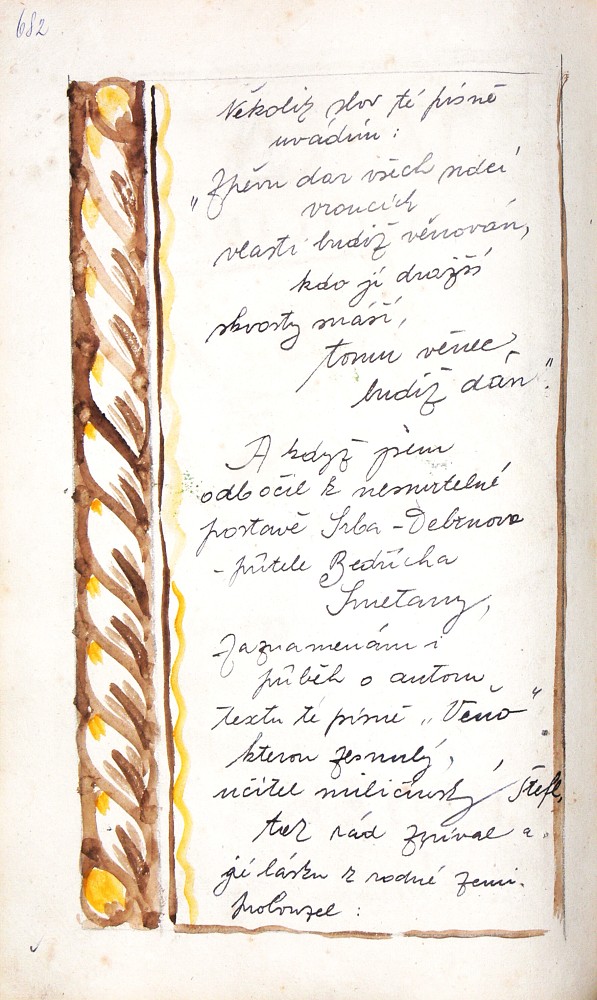 682
Několik slov té písně
uvádím:
"Zpěvu dar všech srdcí
vroucích
vlasti budiž věnován,
kdo jí dražší
skvosty snáší,
tomu věnec
budiž dán".
A když jsem
odbočil k nesmrtelné
postavě Srba-Debrnova
- přítele Bedřicha
Smetany,
zaznamenám i
příběh o autoru
textu té písně „Věno"
kterou zesnulý,
učitel miličínský, Štefl,
též rád zpíval a
jí lásku k rodné zemi